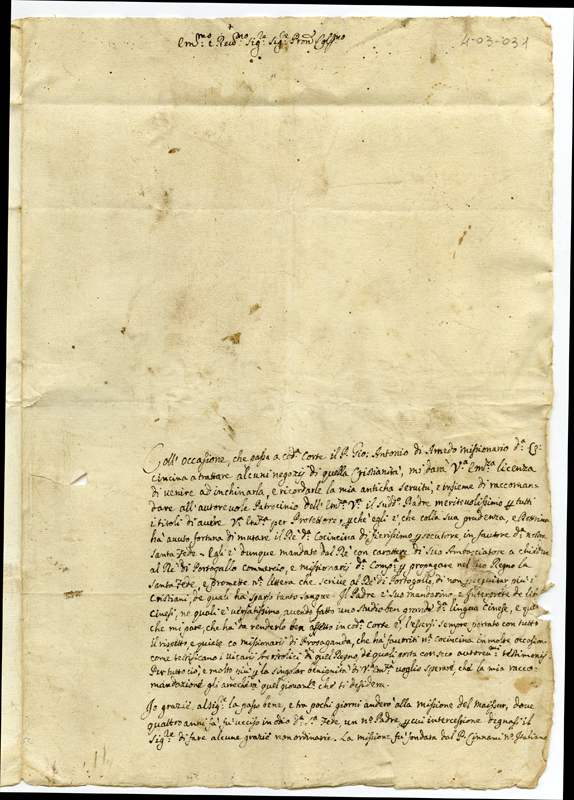 4-03-031
Em.mo e Rev.mo Sig.re Sig.re Pron.
Coll' occasione, che passa a cod.a Corte il P. Gio: Antonio di Arnedo missionario d.a Co-
cincina a trattare alcuni negozij di quella Cristianità, mi darà V.a Em.za licenza
di venire ad inchinarla, e ricordarle la mia anticha servitù, e insieme di raccoman-
dare all' autorevole Patrocinio dell' Em.za V.a il sud.o Padre meritevolissimo p tutti
i titoli di avere V.a Em.za per Protettore, p che egli è, che colla sua prudenza, e
ha avuto fortuna di mutare il Rè d.a Cocincina di fierissimo psecutore, in fautore d.a nostra
Santa Fede. Egli è dunque mandato dal Rè con carattere di suo Ambasciatore a chiedere
al Rè di Portogallo commercio, e missionarij d.a Comp.a p propagare nel suo Regno la
Santa Fede, e promette n.a lettera che scrive al Rè di Portogallo di non pseguitar più i
Cristiani, de quali hà sparso tanto sangue. Il Padre è suo mandarino, e Interprete de libri
Cinesi, ne quali è versatissimo, avendo fatto uno studio ben grande d.a lingua Cinese, e quello
che mi pare, che hà da renderlo ben affetto in cod.a Corte è, l'essersi sempre portato con tutto
il rispetto, e quiete co missionarij di Propaganda, che hà favoriti n.a Cocincina in molte occasioni
come testificano i Vicarij Apostolici di quel Regno, de quali porta seco autorevoli testimonij.
Per tutto ciò, e molto più p la singolar benignità di V.a Em.za voglio sperare, che la mia racco-
mandazione gli arrecherà quel giovam.to che si desidera.
Io grazie al Sig.re la passo bene, e tra pochi giorni anderò alla missione del Maissur, dove
quattro anni fà fù ucciso in odio d.a S.a Fede, un n.o Padre, p cui intercessione degnasi il
Sig.re di fare alcune grazie non ordinarie. La missione fù fondata dal P. Cinnami n.o Italiano